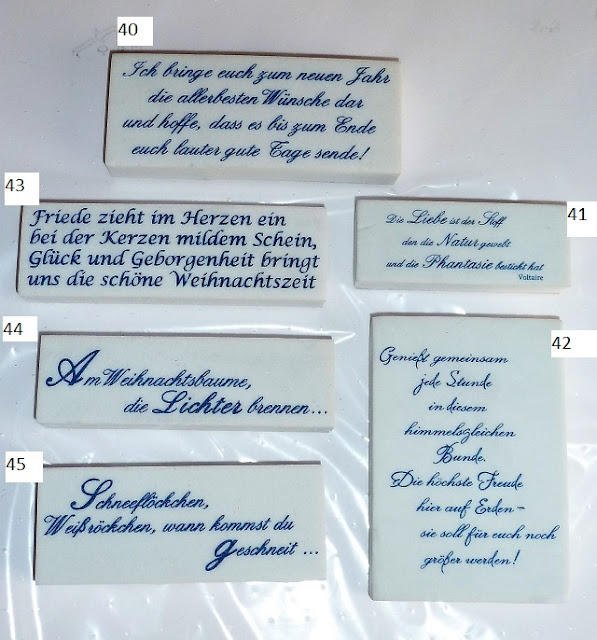 40
Ich bringe euch zum neuen Jahr
die allerbesten Wünsche dar
und hoffe, dass es bis zum Ende
euch lauter gute Tage sende!
43
Friede zieht im Herzen ein
bei der Kerzen mildem Schein,
Glück und Geborgenheit bringt
uns die schöne Weihnachtszeit
41
Die Liebe ist der Stoff
den die Natur gewebt
und die Phantasie bestickt hat
Voltaire
44
Am Weihnachtsbaume,
die Lichter brennen...
42
Genießt gemeinsam
jede Stunde
in diesem
himmelsgleichen
Bunde.
Die höchste Freude
hier auf Erden –
sie soll für euch noch
größer werden!
45
Schneeflöckchen,
Weißröckchen, wann kommst du
geschneit ...